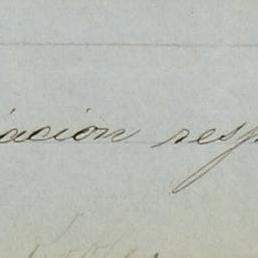 iación resp